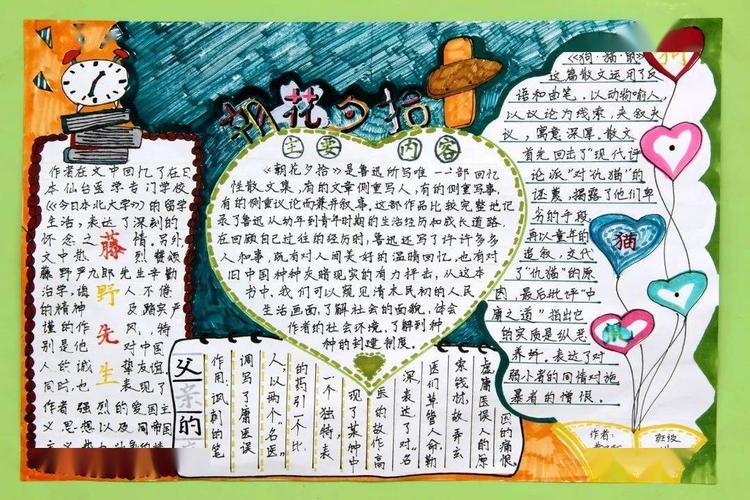 朝花夕拾
主要 内容
《朝花夕拾》是鲁迅所写唯一一部回忆
性散文集,有的文章侧重写人,有的侧重写事,
有的侧重议论而兼开叙事。这部作品比较完整地记
录了鲁迅从幼年到青年时期的生活经历和成长道路.
在回顾自己过往的经历时,鲁迅还写了许许多多
人和事,既有对人间美好的温晴回忆,也有对
旧中国种种灰暗现实的有力抨击,从这本
书中,我们可以窥见清末民初的人民
生活画面,了解社会的面貌,体会
作者的社会环境,了解到种
种的封建制度.
作者在文中回忆了在日
本仙台医学专门学校
《今日本北大学》的留学
生活,表达了深刻的
怀念之 情.另外
文中散 赞颂
藤野严九郎先生辛勤
治学,诲 人不倦
的精神 及踏实严
谨的作 风,特
别是他 对中国
人的诚 挚友谊.
同时,也 表现了
作者强烈的爱国主
义思想以及同帝国
藤野先生
父亲的
作用:讽刺的笔
调写了庸医误
人,以两个"名医"
的药引一个比
一个独特,表
现了某种中
医的故作高
深表达了对"名
医们草菅人命,勒
索钱财,故弄玄
虚庸医误人的原
因的痛恨.
《狗·猫·鼠》
这篇散文运用了反
语和曲笔,以动物喻人,
以议论为线索,夹叙夹
议,寓意深厚.散文
首先回击了"现代评
论派"对"仇猫"的
诬蔑,揭露了他们卑
劣的手段.
再以童年的
追叙,交代
了"仇猫"的原
因,最后批评"中
庸之道"指出它
的实质是纵恶
养奸,表达了对
弱小者的同情对施
暴者的憎恨.
狗
猫
作者:
班级